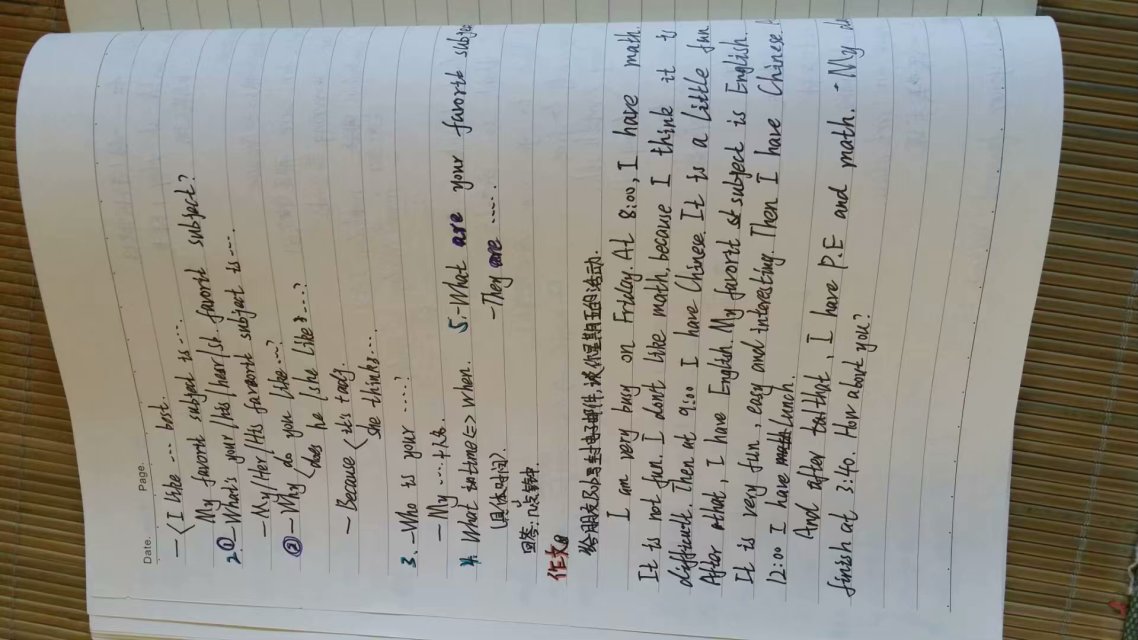 Date. Page.
— < I like .... best.
My favorite subject is ....
2.① —What's your/his/hear/sh. favorite subject?
—My/Her/His favorite subject is ....
② — Why < do you like ...?
does he/she like ...?
— Because < it's
she thinks...
3. —Who is your ....?
— My ....
4. What time <=> when.
(具体时间)
回答:几点
5.—What are your favorite
—They are .....
作文
I am very busy on Friday. At 8:00, I have math.
It is not fun. I don't like math, because I think it is
difficult. Then at 9:00 I have Chinese. It is a little fun
After that, I have English. My favorit subject is English.
It is very fun, easy and interesting. Then I have Chinese.
12:00 I have lunch.
And after that, I have P.E and math. - My
finish at 3:40. How about you?